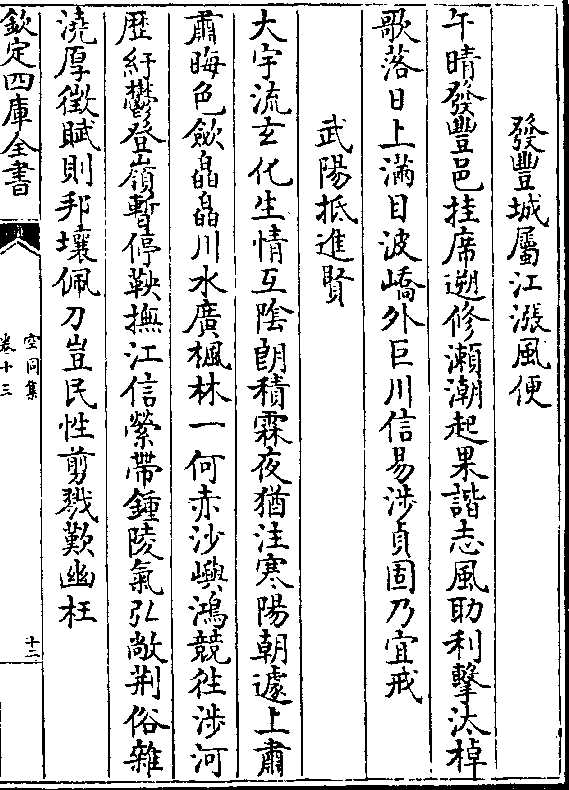 發豐城屬江漲風便
午晴發豐邑挂席遡修瀬潮起果諧志風助利擊汰棹
歌落日上滿目波嶠外巨川信易涉貞固乃宜戒
武陽抵進賢
大宇流玄化生情互陰朗積霖夜猶注寒陽朝遽上肅
肅晦色歛皛皛川水廣楓林一何赤沙嶼鴻競徃涉河
歴紆鬱登嶺暫停鞅撫江信縈帶鍾陵氣弘敞荆俗雜
澆厚徵賦則邦壤佩刀豈民性剪戮歎幽枉
欽定四庫全書
空同集
卷十三
十二